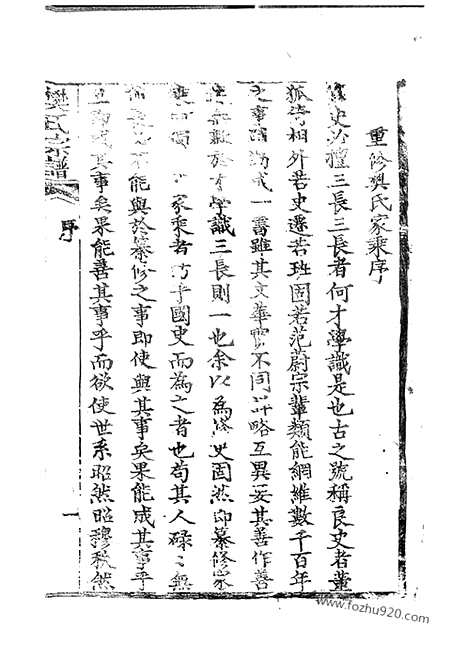 重修樊氏家乘序
史必擅三長三長者何才學識是也古之號稱良史者董
狐尚相外若史遷若班固若范蔚宗輩類能網維數千百年
之事蹟勒成一書雖其文華實不同詳略互異妥其善作善
述無歉於才學識三長則一也余以為修史固然即纂修家
乘亦猶家乘者仿乎國史而為之者也苟其人碌〻無
能與於纂修之事即使與其事矣果能成其事乎
成其事矣果能善其事乎而欲使世系昭然昭穆秩然
樊氏宗譜
序
一
www.fozhu920.com